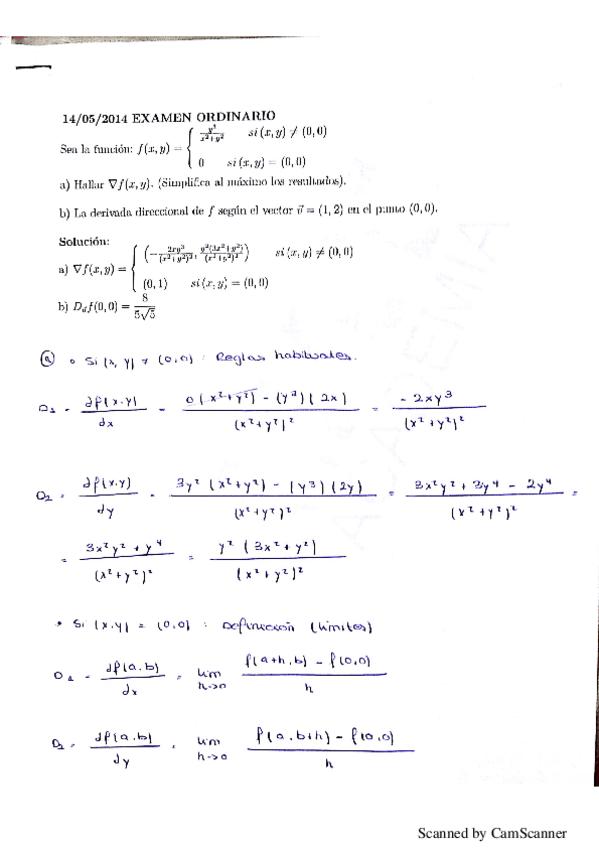 14/05/2014 EXAMEN ORDINARIO
Sea la función: f(x, y) = { y³/(x²+y²) si (x, y) ≠ (0, 0)
0 si (x, y) = (0, 0)
a) Hallar ∇f(x, y). (Simplifica al máximo los resultados).
b) La derivada direccional de f según el vector v⃗ = (1, 2) en el punto (0, 0).
Solución:
a) ∇f(x, y) = { (−2xy³/(x²+y²)², y²(3x²+y²)/(x²+y²)²) si (x, y) ≠ (0, 0)
(0, 1) si (x, y) = (0, 0)
b) D_d f(0, 0) = 8/(5√5)
ⓐ • Si (x, y) ≠ (0,0) : Reglas habituales.
D₁ = ∂f(x.y)/dx = (0(x²+y²) - (y³)(2x))/(x²+y²)² = -2xy³/(x²+y²)²
D₂ = ∂f(x.y)/dy = (3y²(x²+y²) - (y³)(2y))/(x²+y²)² = (3x²y² + 3y⁴ - 2y⁴)/(x²+y²)² =
= (3x²y² + y⁴)/(x²+y²)² = y²(3x²+y²)/(x²+y²)²
• Si (x.y) = (0,0) : Definición (límites)
D₁ = ∂f(a.b)/dx = lim h->0 (f(a+h,b) - f(0,0))/h
D₂ = ∂f(a.b)/dy = lim h->0 (f(a.b+h) - f(0,0))/h
Scanned by CamScanner